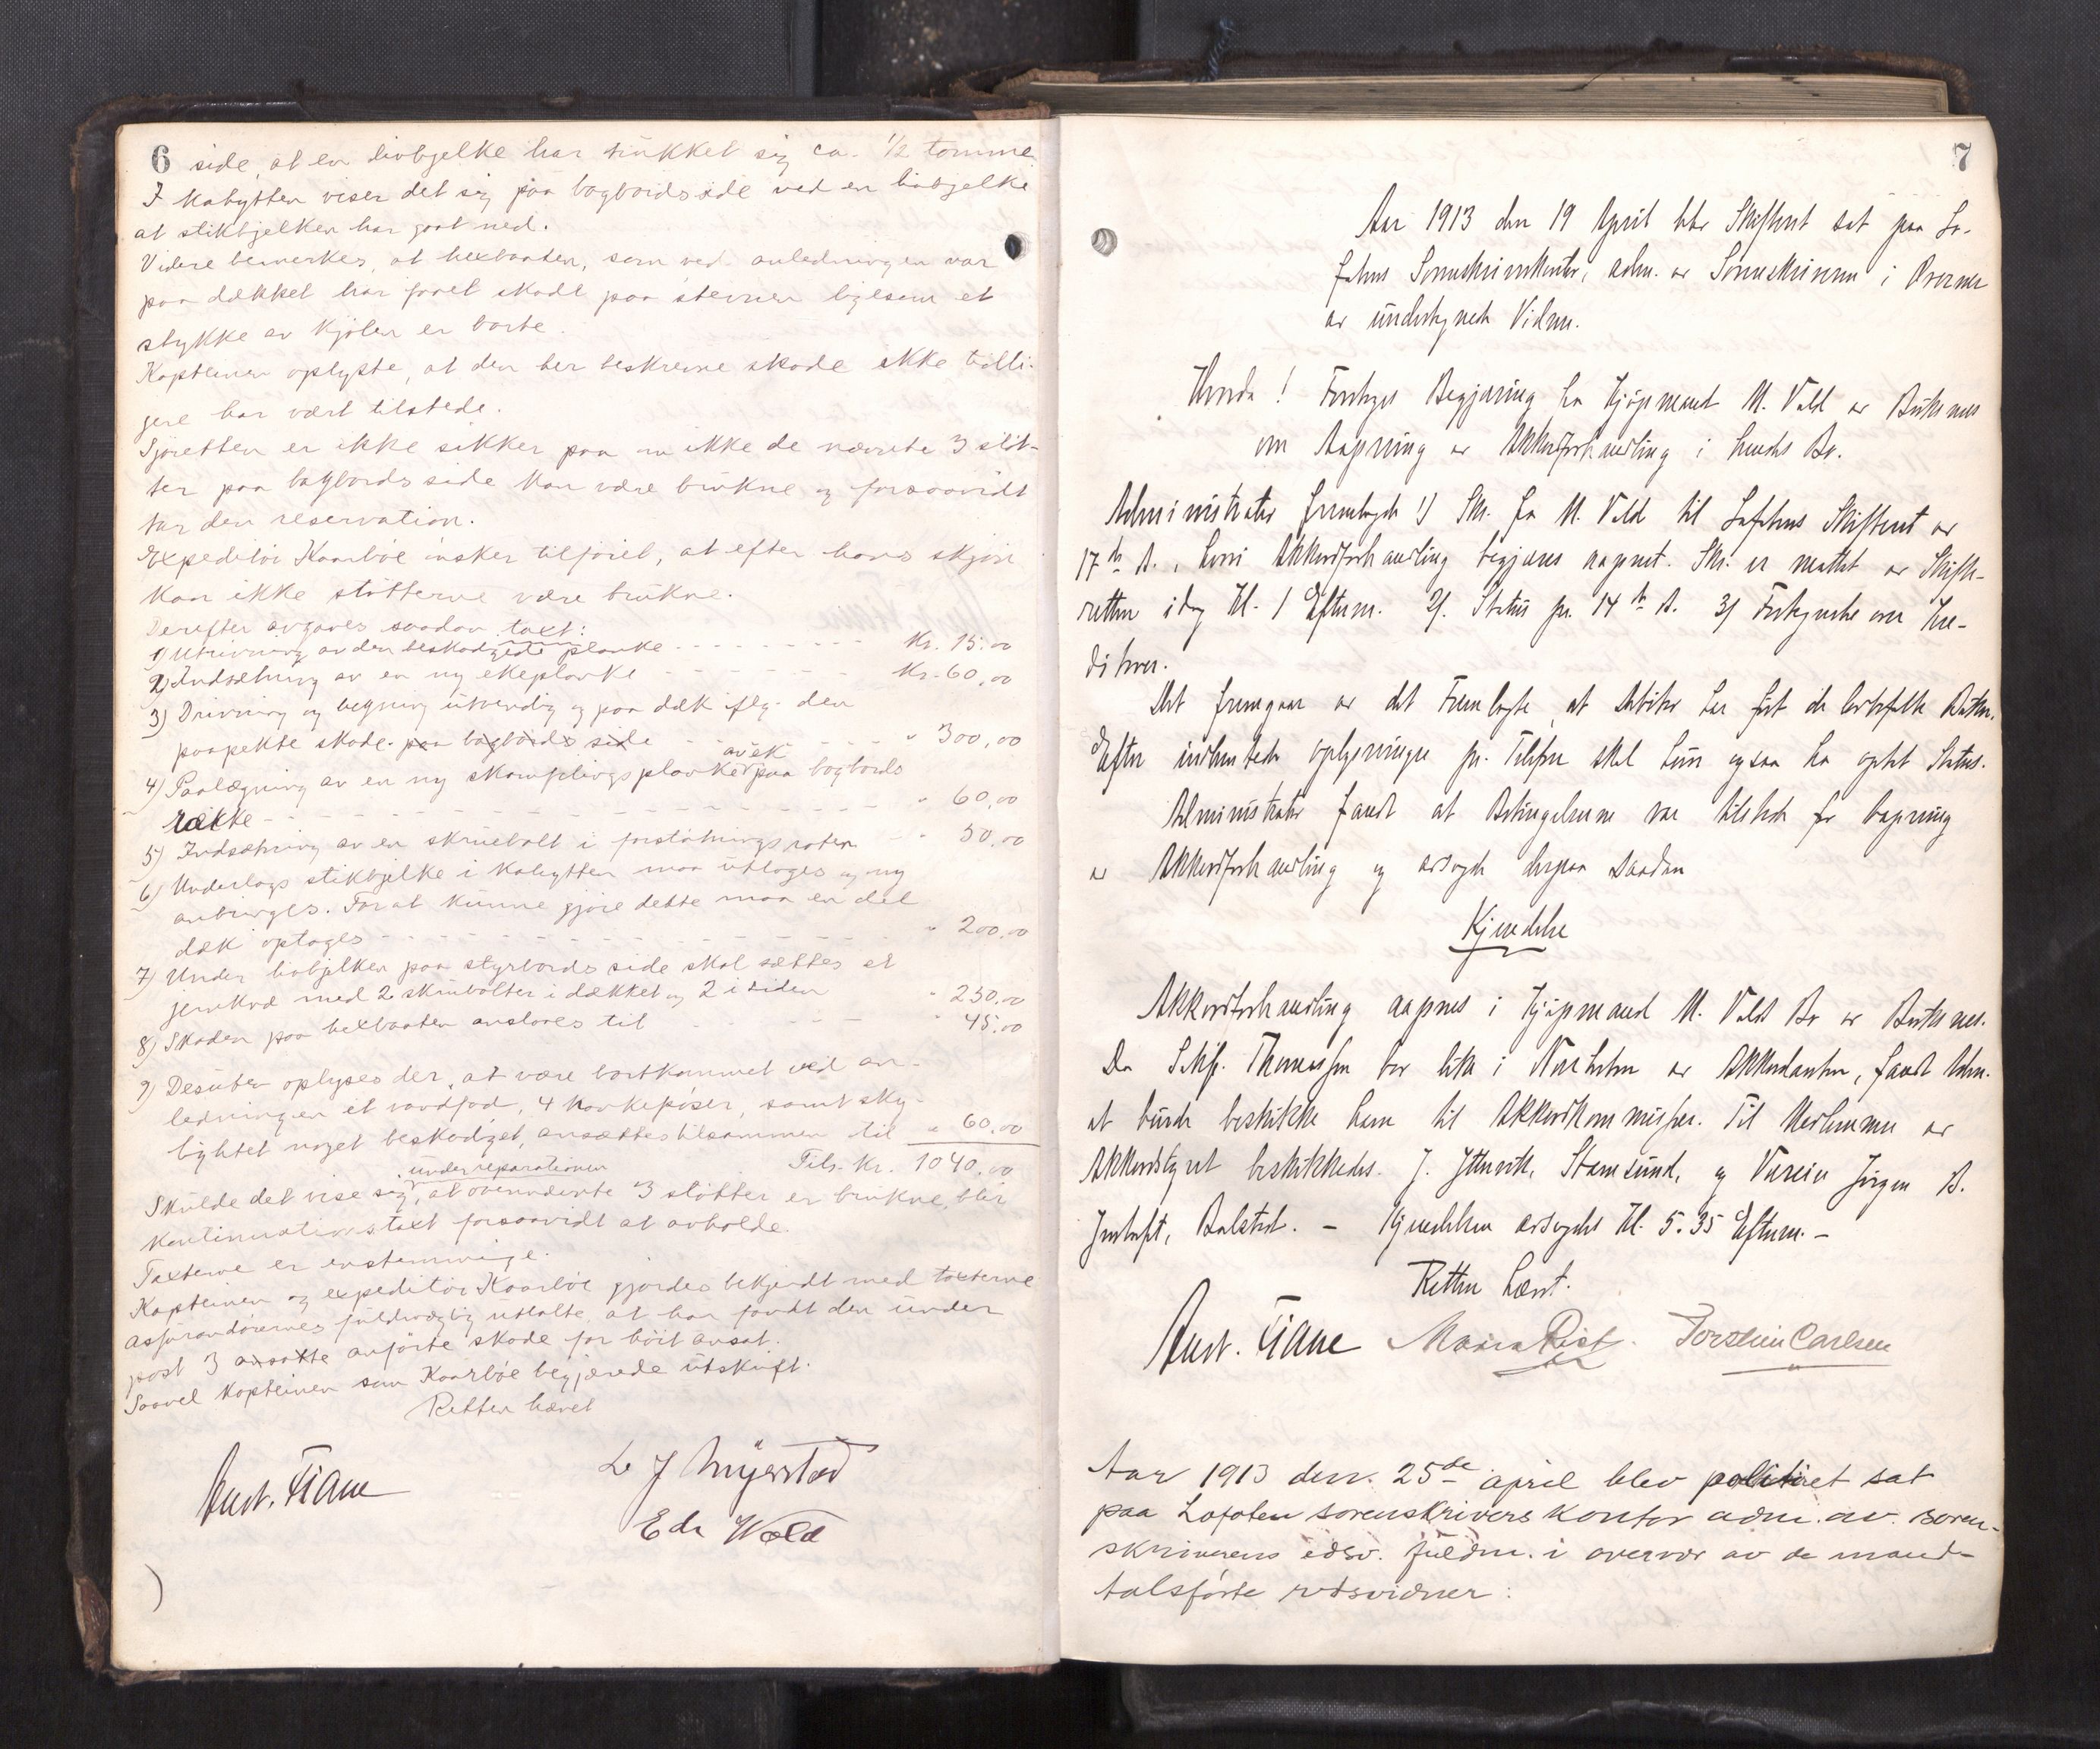 6 side, at en livbjelke har trukket sig ca. 1/2 tomme
I kahytten viser det sig paa bagbords side ved en livbjelke
at stikbjelken har gaat ned.
Videre bemerkes, at hexbaaten, som ved anledningen var
paa dækket har faaet skade paa stevnen ligesom et
stykke av kjølen er borte.
Kapteinen oplyste, at den her beskrevne skade ikke tidli-
gere har vært tilstede.
Sjøretten er ikke sikker paa om ikke de nævnte 3 støt-
ter paa bagbords side kan være brukne og forsaavidt
tar den reservation.
Expeditør Kaarbøe ønsker tilføiet, at efter hans skjøn
kan ikke støtterne være brukne.
Derefter avgaves saadan taxt:
1) Utrivning av den beskadigede planke - - - - Kr. 15.00
2) Indsætning av en ny ekeplanke - - - - Kr. 60,00
3) Drivning og begning utvendig og paa dæk iflg. den
paapekte skade. paa bagbords side - - - - " 300,00
4) Paalægning av en ny skamplingsplanke av ek paa bagbords
række - - - - " 60,00
5) Indsætning av en skruebolt i forstøtnings - " 50,00
6) Underlags stikbjelke i kahytten maa uttages og ny
anbringes. For at kunne gjøre dette maa en del
dæk optages - - - - " 200,00
7) Under livbjelken paa styrbords side skal sættes et
jernknæ med 2 skruebolter i dækket og 2 i siden " 250,00
8) Skaden paa hexbaaten anslaaes til - - - " 45.00
9) Desuten oplyses der, at være bortkommet ved an-
ledningen et vandfad, 4 korkepøser, samt sky-
lightet noget beskadiget, ansættes tilsammen til " 60,00
Tils. Kr. 1040,00
Skulde det vise sig, under reparationen at ovennævnte 3 støtter er brukne, blir
kontinuationstaxt forsaavidt at avholde.
Taxterne er enstemmige.
Kapteinen og expeditør Kaarbøe gjordes bekjendt med taxterne
assurandørernes fuldmægtig uttalte, at han fandt den under
post 3 ansatte anførte skade for høit ansat.
Saavel kapteinen som Kaarbøe begjærede utskrift.
Retten hævet
Aust. Fiane
L J
Edv Wold
7
Aar 1913 den 19 April blev Skifteret sat paa Lo-
fotens Sorenskriverkontor, adm. av Sorenskriveren i Overvær
av undertegnede Vidner.
Hvorda! Foretages Begjæring fra Kjøpmand M. Vold av Buksnes
om Aapning av Akkordforhandling i hendes Bo.
Administrator fremlagde 1) Skr. fra M. Vold til Lofotens Skifteret av
17 ds. d., hvori Akkordforhandling begjæres aapnet. Skr. er mottat av Skifte-
retten idag Kl. 1 Efterm. 2). Status pr. 14 ds. d. 3) Fortegnelse over Kre-
ditorer.
Det fremgaar av det Fremlagte, at Debitor har ført de lovbefalte Bøker.
Efter indhentede Oplysninger pr. Telefon skal hun ogsaa ha optat Status.
Administrator fandt at Betingelserne var tilstede for Aapning
av Akkordforhandling og avsagde derpaa saadan
Kjendelse
Akkordforhandling aapnes i Kjøpmand M. Volds Bo av Buksnes.
Da Sakf. Thomassen bor like i Nærheten av Akkordanten, fandt Adm.
at burde beskikke ham til Akkordkommissær. Til Medlemmer av
Akkordstyret beskikkedes J. Stamsund, og Jørgen B.
Balstad. — Kjendelsen avsagdes Kl. 5.35 Efterm. —
Retten hævet.
Aust. Fiane Torstein Carlsen
Aar 1913 den. 25de april blev politiret sat
paa Lofoten sorenskriverskontor adm. av. soren-
skriverens edsv. fuldm. i overvær av de mand-
talsførte retsvidner: